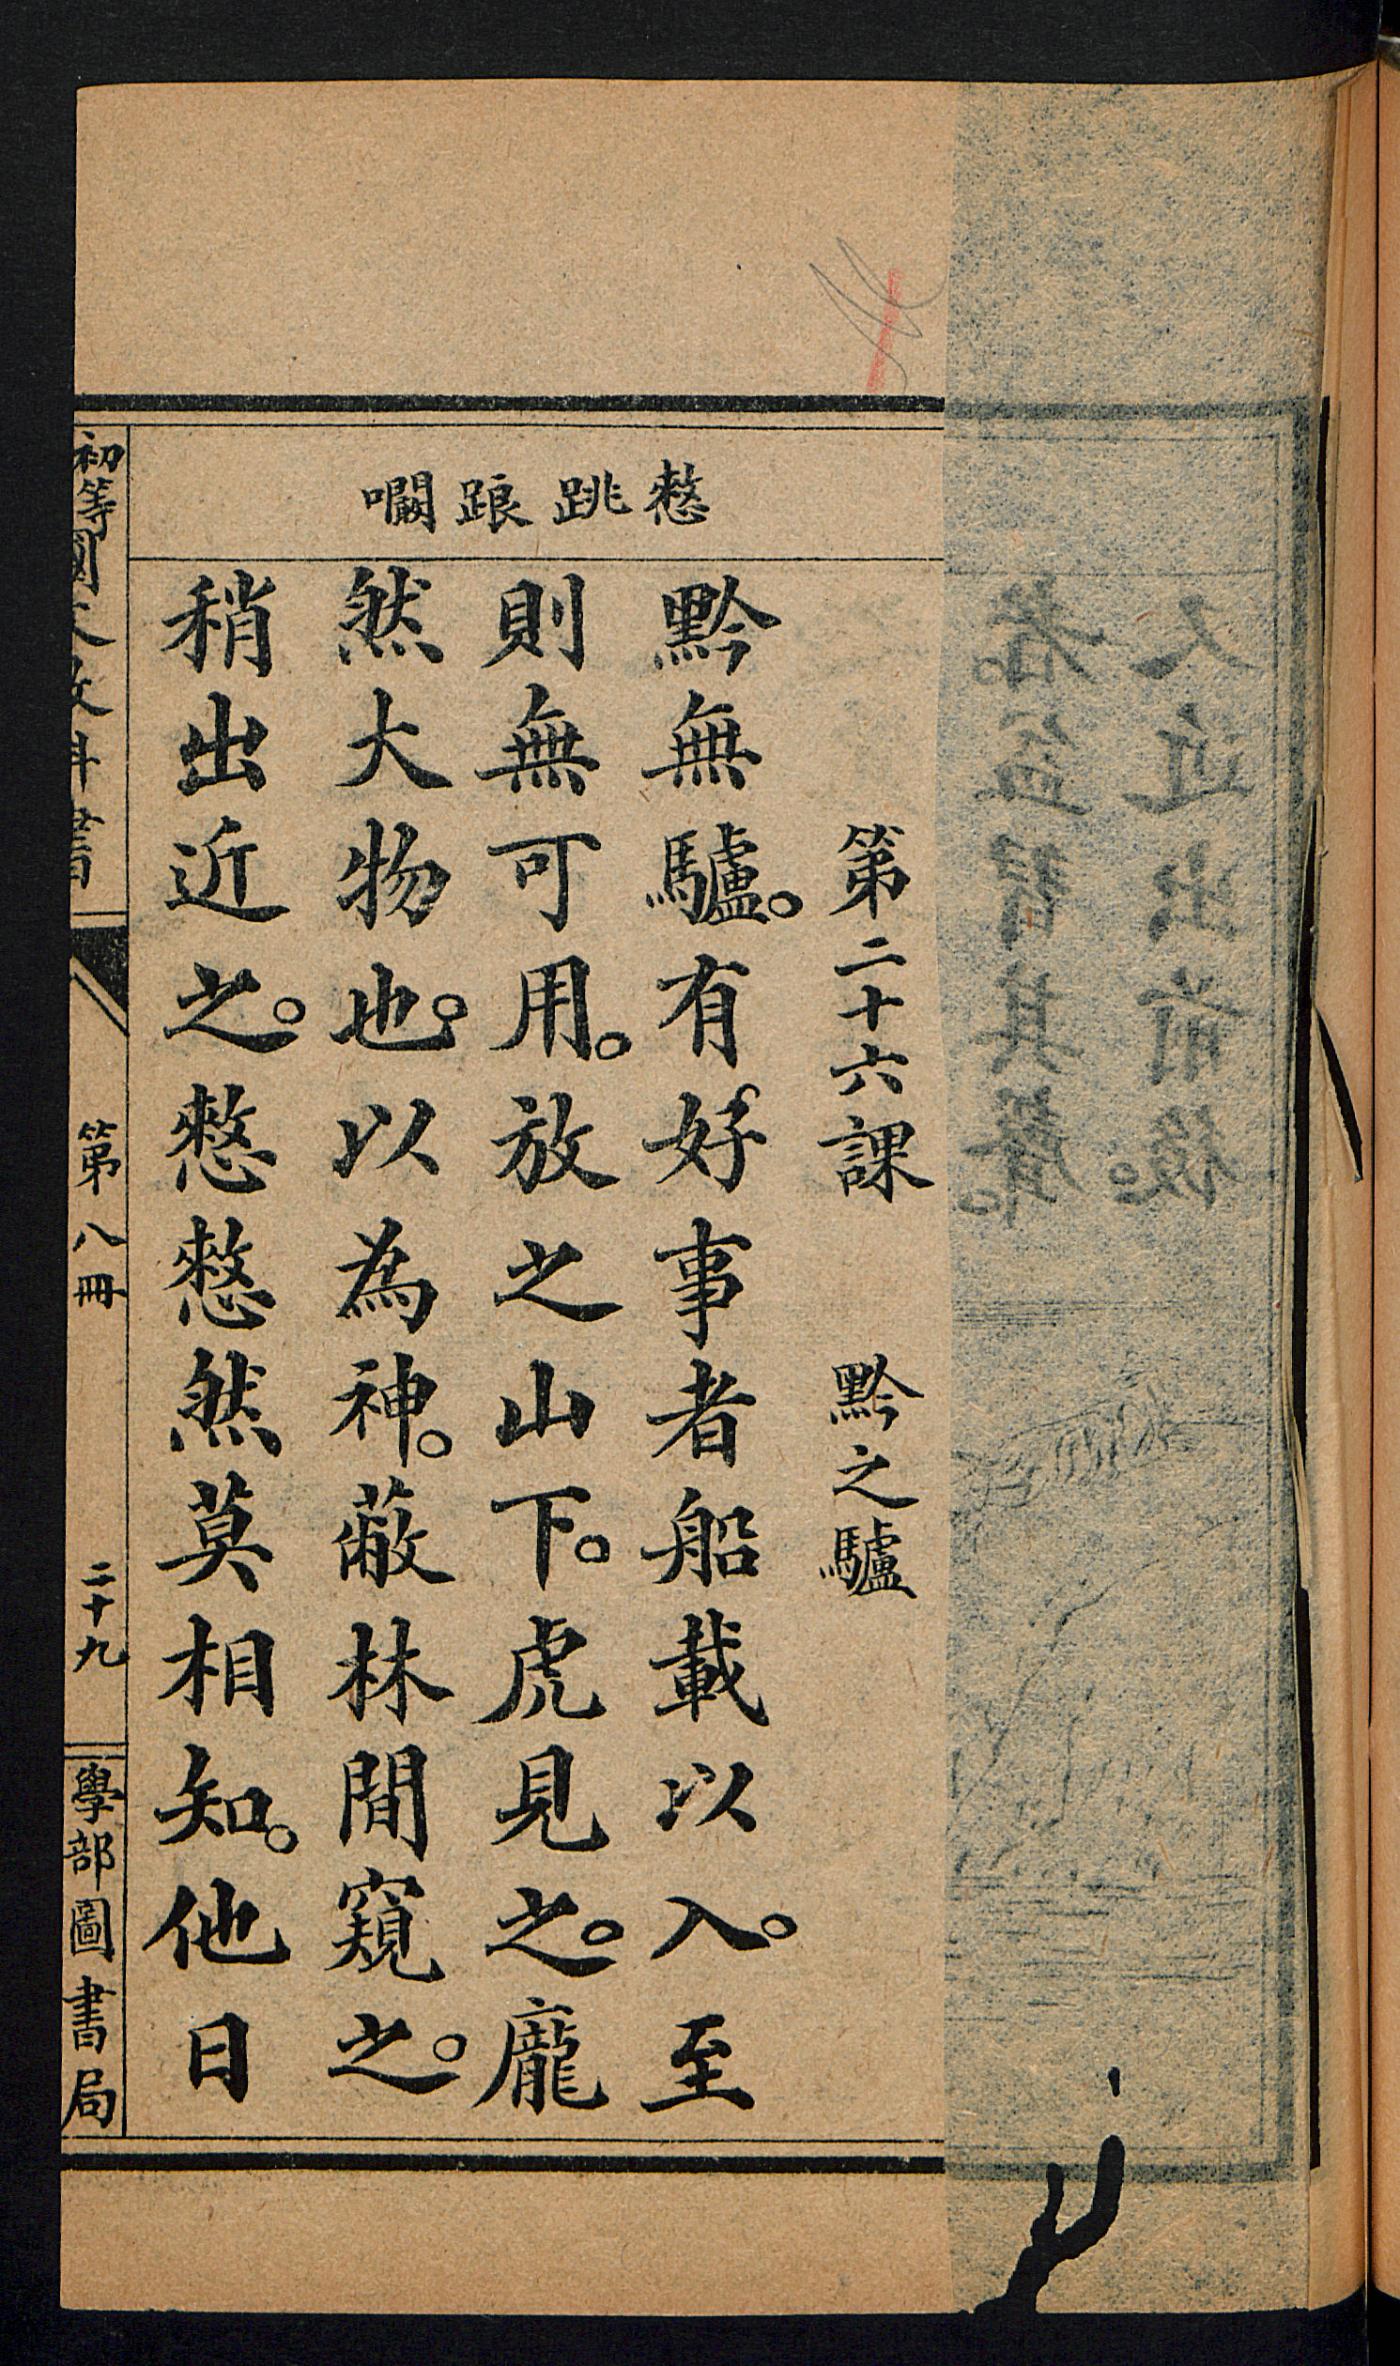 憖跳踉㘚
第二十六課　黔之驢
黔無驢。有好事者船載以入。至
則無可用。放之山下。虎見之。龐
然大物也。以為神。蔽林間窺之。
稍出近之。憖憖然莫相知。他日
初等國文教科書　第八冊　二十九　學部圖書局
又近出前後。
者。益習其聲。